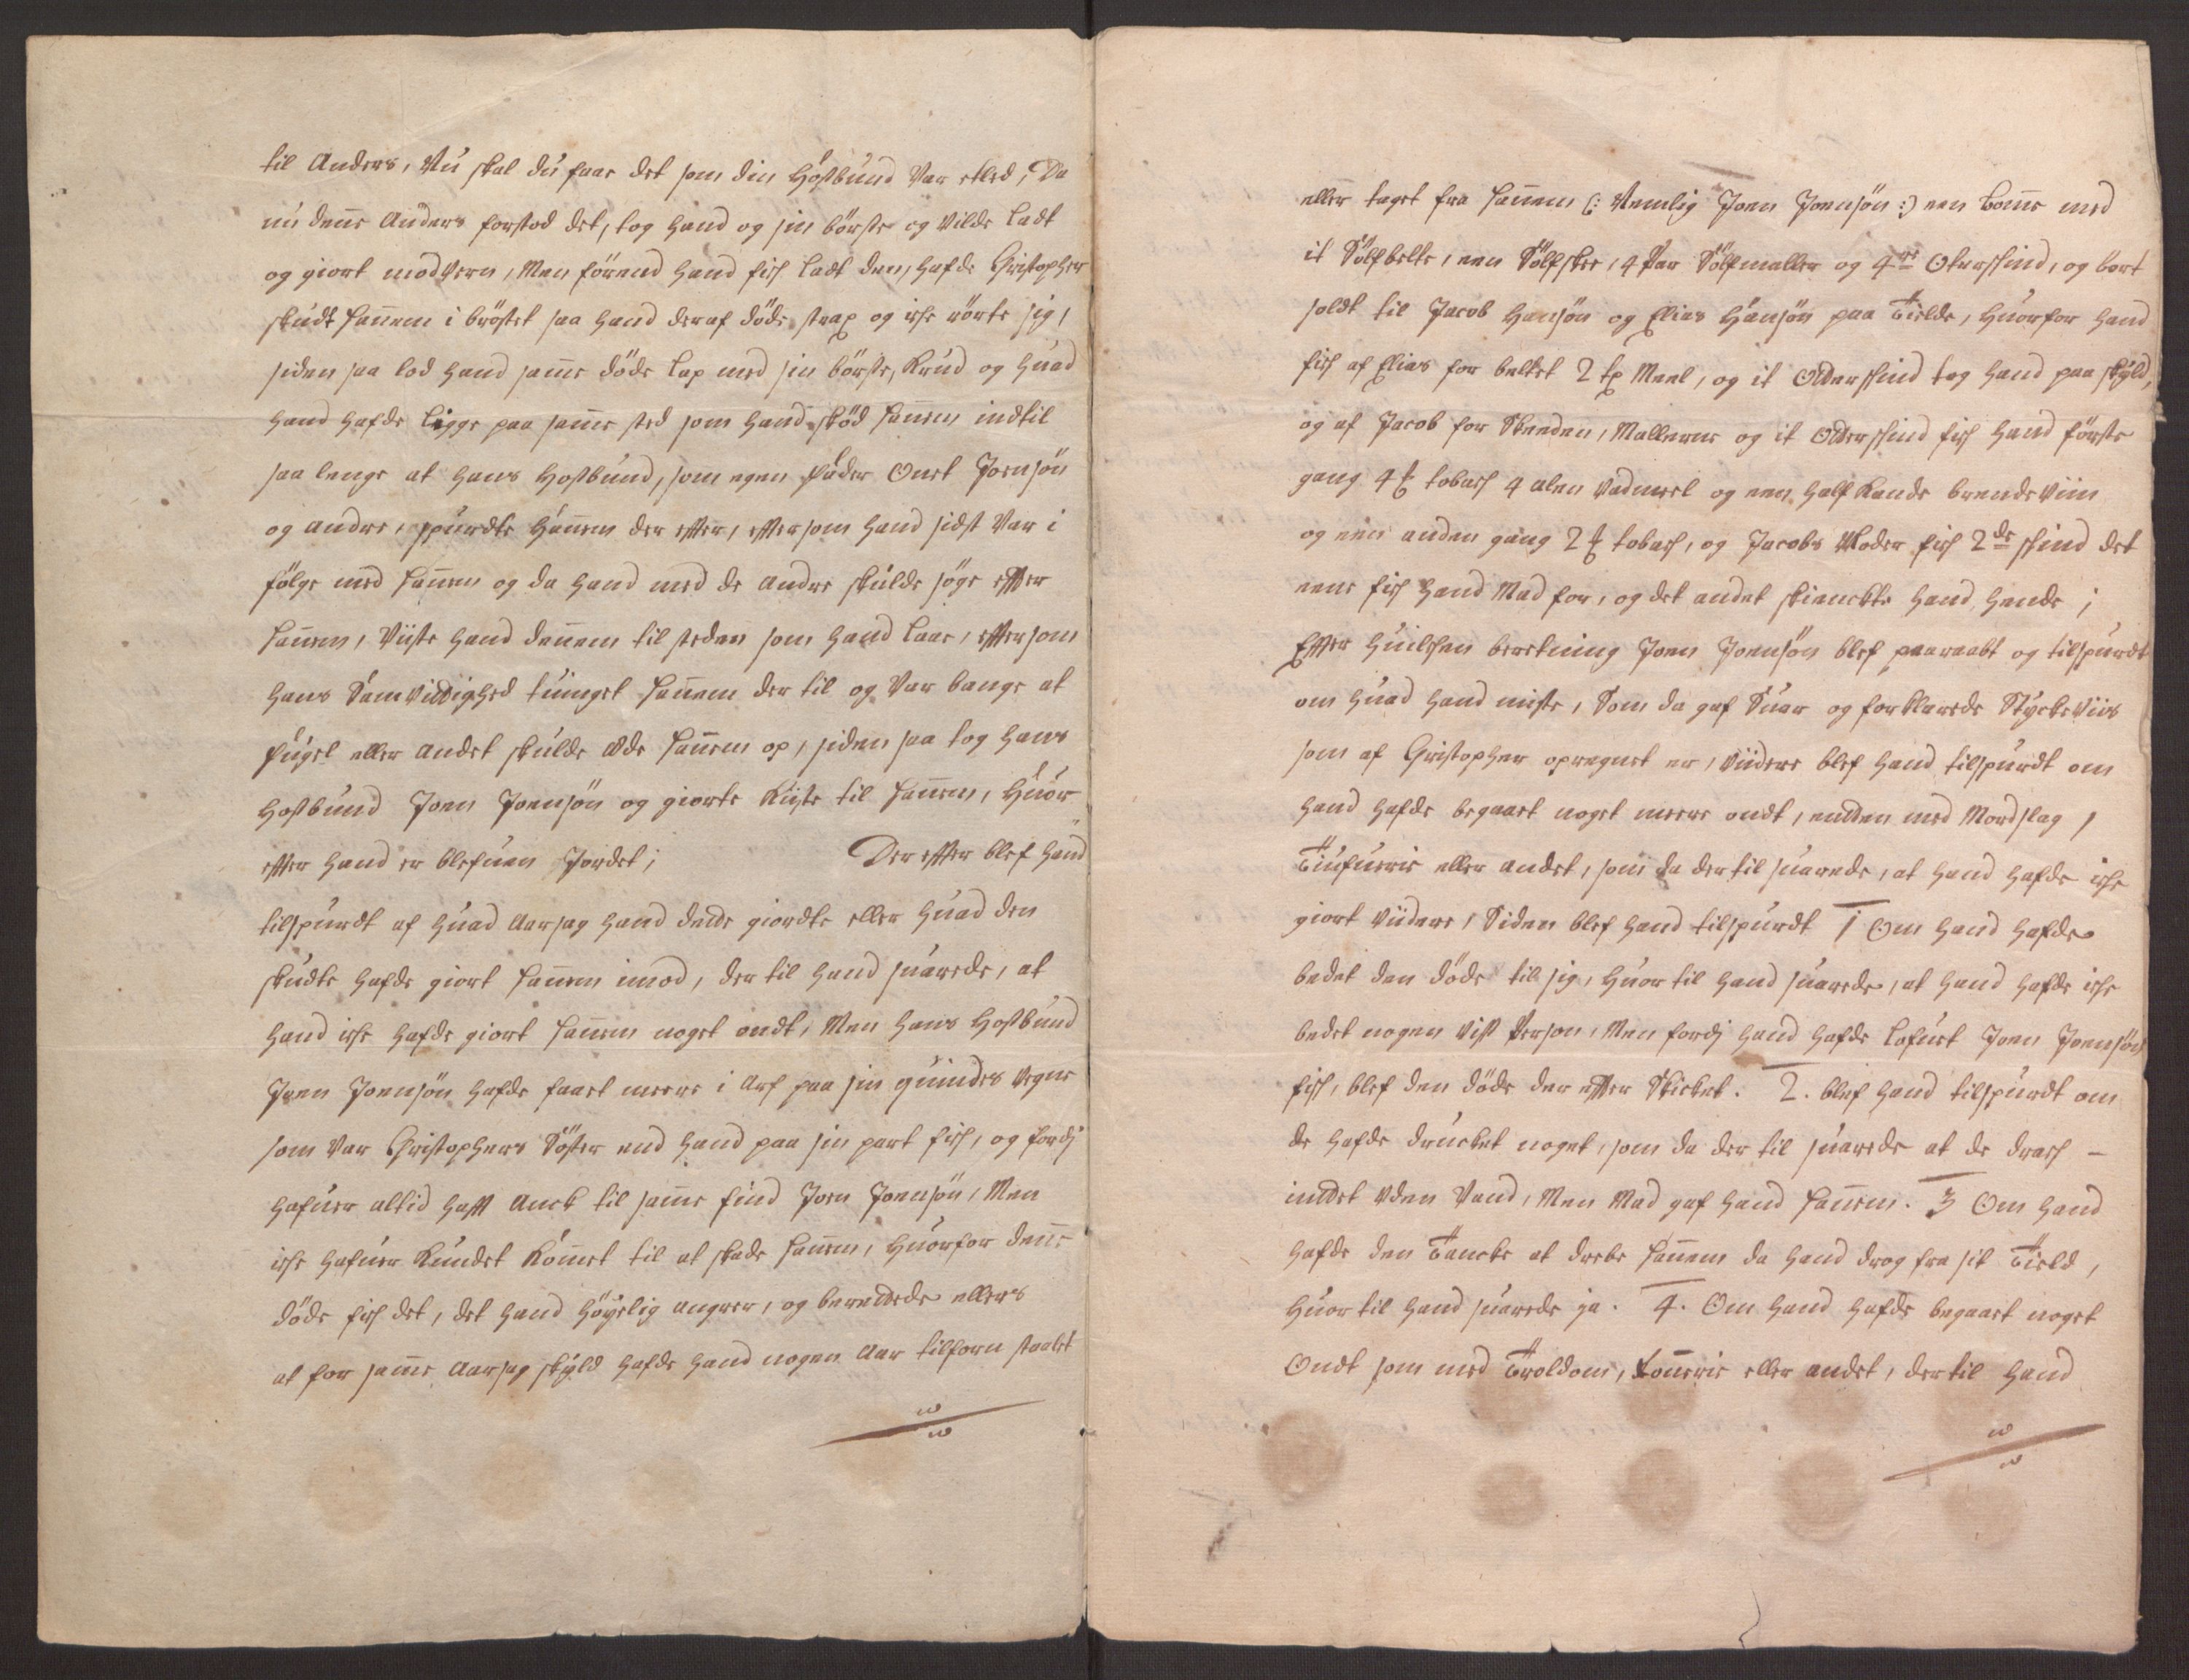 til Anders, Nu skal du faae det som din Hosbund Var etled, Da
nu denne Anders forstod det, tog hand og sin börste og Vilde ladt
og giort modvern, Men förend hand fich ladt den, hafde Christopher
skudt hannem i bröstet saa hand deraf döde strax og iche rörte sig,
siden saa lod hand samme döde Lap med sin börste, Krud og huad
hand hafde ligge paa samme sted som hand sköd hannem indtil
saa lenge at hans Hosbund, som egen fader Onet Joensön
og andre, spurdte hannem der effter, efftersom hand sidst Var i
fölge med hannem og da hand med de andre skulde söge effter
hannem, Viiste hand dennem til steden som hand laae, efftersom
hans Samvittighed tuinget hannem der til og Var bange at
fugel eller andet skulde æde hannem op, siden saa tog hans
Hosbund Joen Joensön og giorte Kiiste til hannem, Huor
effter hand er blefuen Jordet; Der effter blef hand
tilspurdt af huad Aarsag hand dette giordte eller huad den
skudte hafde giort hannem imod, der til hand suarede, at
hand iche hafde giort hannem noget ondt, Men hans Hosbund
Joen Joensön hafde faaet meere i Arf paa sin quindes Vegne
som Var Christophers Söster end hand paa sin part fich, og fordj
hafuer altid hafft Anck til samme find Joen Joensön, Men
iche hafuer Kundet Kommet til at skade hannem, Huorfor denne
döde fich det, det hand höyelig angrer, og berettede ellers
at for samme Aarsag skyld hafde hand nogen Aar tilforn staalet
eller taget fra hannem (: Nemlig Joen Joensön :) een Comme med
it Sölfbelte, een Sölfskee, 4 Par Sölfmaller og 4re Oterskind, og bort
soldt til Jacob Hansön og Elias Hansön paa Tielde, Huorfor hand
fich af Elias for beltet 2 tp Meel, og it Otterskind tog hand paa skyld,
og af Jacob for Skeeden, Mallerne og it Otterskind fich hand förste
gang 4 ℔ toback 4 alen Vadmeel og een half Kande brendeviin
og een anden gang 2 ℔ toback, og Jacobs Moder fich 2de skind det
eene fich hand Mad for, og det andet skienckte hand hende;
Effter huilchen beretning Joen Joensön blef paaraabt og tilspurdt
om huad hand miste, Som da gaf Suar og forklarede Styckeviis
som af Christopher opregnet er, Viidere blef hand tilspurdt om
hand hafde begaaet noget meere ondt, entten med Mordslag,
Tiufuerie eller andet, som da der til suarede, at hand hafde iche
giort Viidere, Siden blef hand tilspurdt 1 Om hand hafde
bedet den döde til sig, Huor til hand suarede, at hand hafde iche
bedet nogen Vist Person, Men fordj hand hafde lofuet Joen Joensön
fisk, blef den döde der effter Skicket. 2. blef hand tilspurdt om
de hafde drucket noget, som da der til suarede at de drack -
intet Uden Vand, Men Mad gaf hand hannem. 3 Om hand
hafde den Tancke at drebe hannem da hand drog fra sit Tield,
Huor til hand suarede ja. 4. Om hand hafde begaaet noget
Ondt som med Troldom, Romerie eller andet, der til hand